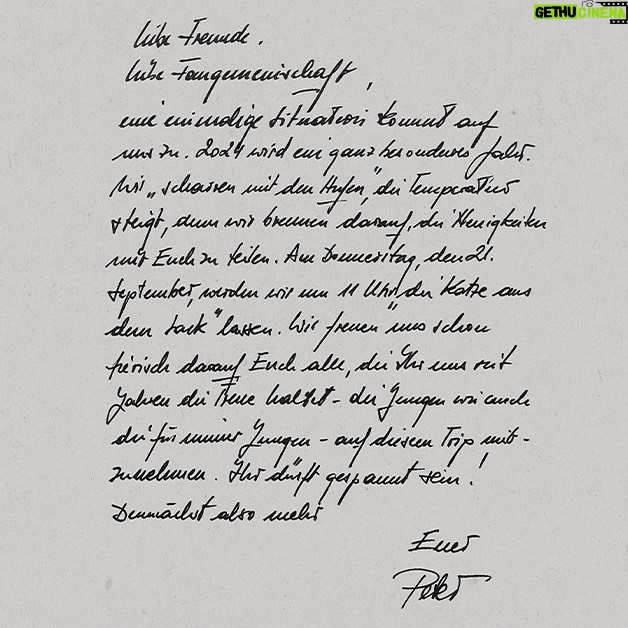 GETHUCINEMA
Liebe Freunde,
liebe Fangemeinschaft,
eine einmalige Situation kommt auf
uns zu. 2024 wird ein ganz besonderes Jahr.
Wir „scharren mit den Hufen", die Temperatur
steigt, denn wir brennen darauf, die Neuigkeiten
mit Euch zu teilen. Am Donnerstag, den 21.
September, werden wir um 11 Uhr „die Katze aus
dem Sack" lassen. Wir freuen uns schon
tierisch darauf Euch alle, die Ihr uns seit
Jahren die Treue haltet - die Jungen wie auch
die für immer Jungen - auf diesen Trip mit-
zunehmen. Ihr dürft gespannt sein!
Demnächst also mehr
Euer
Peter